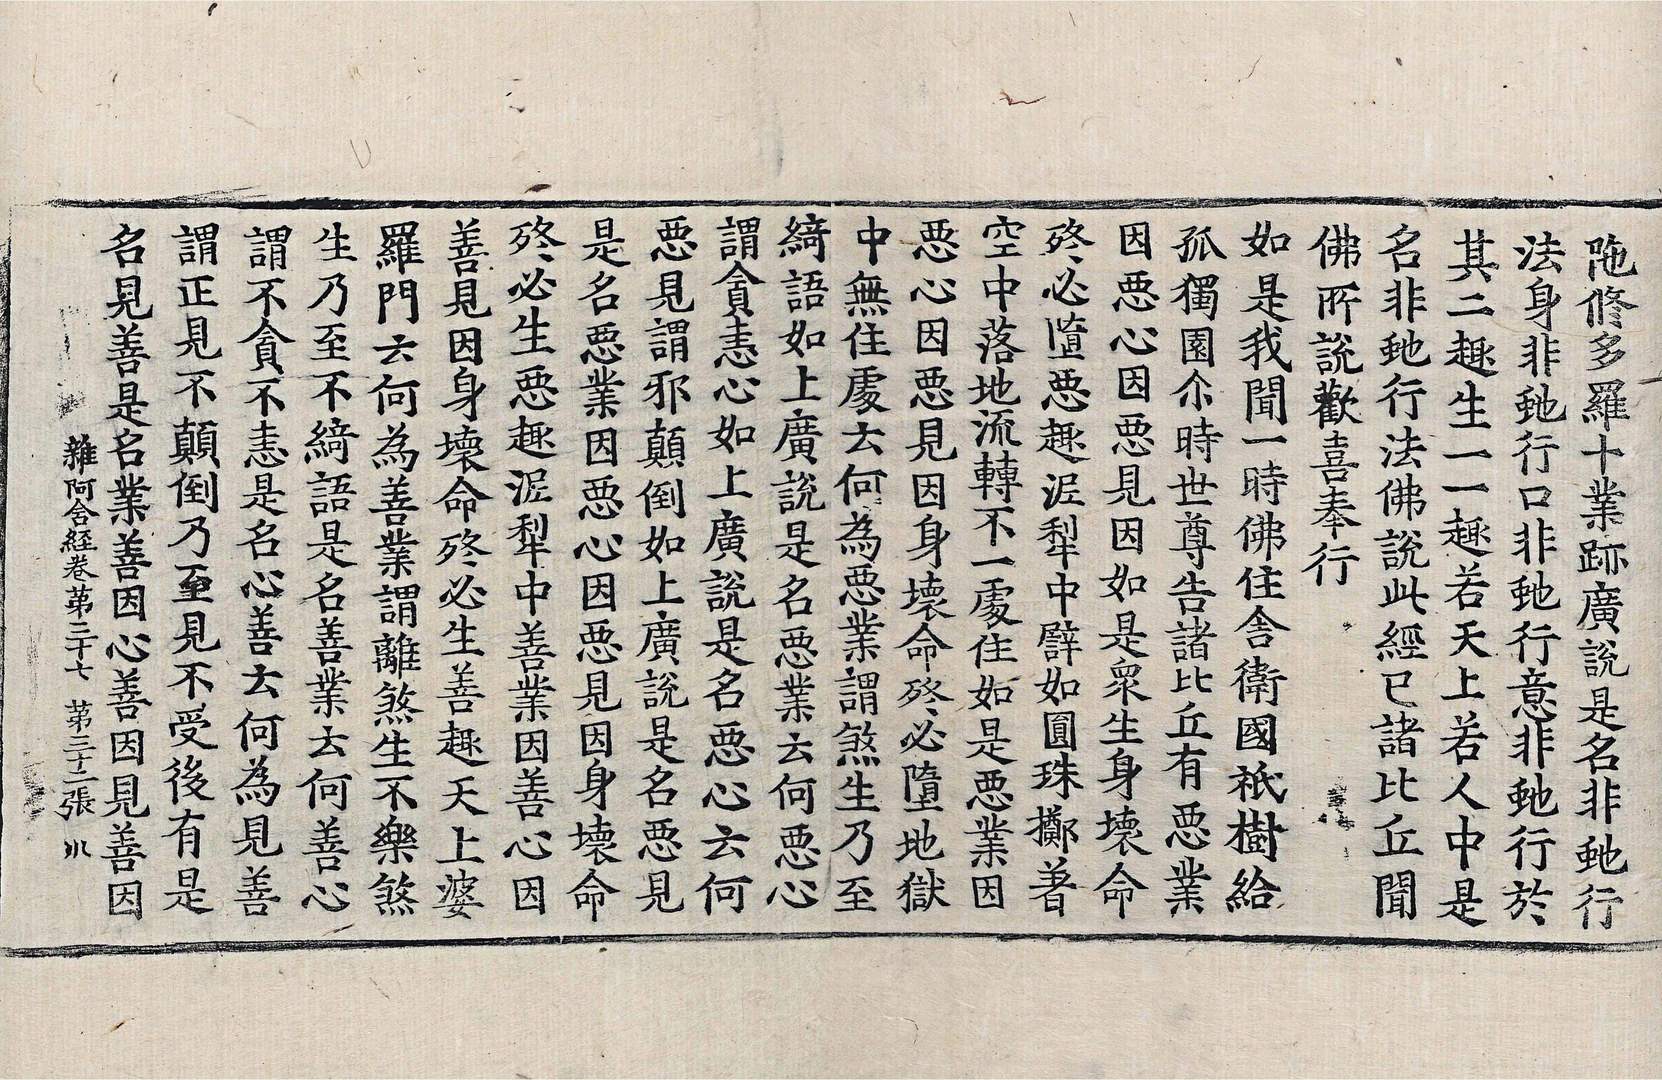 陁修多羅十業跡廣說是名非虵行
法身非虵行口非虵行意非虵行於
其二趣生一一趣若天上若人中是
名非虵行法佛說此經已諸比丘聞
佛所說歡喜奉行
如是我聞一時佛住舍衛國祇樹給
孤獨園尒時世尊告諸比丘有惡業
因惡心因惡見因如是衆生身壞命
終必墮惡趣泥犁中譬如圓珠擲著
空中落地流轉不一處住如是惡業因
惡心因惡見因身壞命終必墮地獄
中無住處云何為惡業謂煞生乃至
綺語如上廣說是名惡業云何惡心
謂貪恚心如上廣說是名惡心云何
惡見謂邪顛倒如上廣說是名惡見
是名惡業因惡心因惡見因身壞命
終必生惡趣泥犁中善業因善心因
善見因身壞命終必生善趣天上婆
羅門云何為善業謂離煞生不樂煞
生乃至不綺語是名善業云何善心
謂不貪不恚是名心善云何為見善
謂正見不顛倒乃至見不受後有是
名見善是名業善因心善因見善因
雜阿含經卷第三十七 第二十二張 𣱵